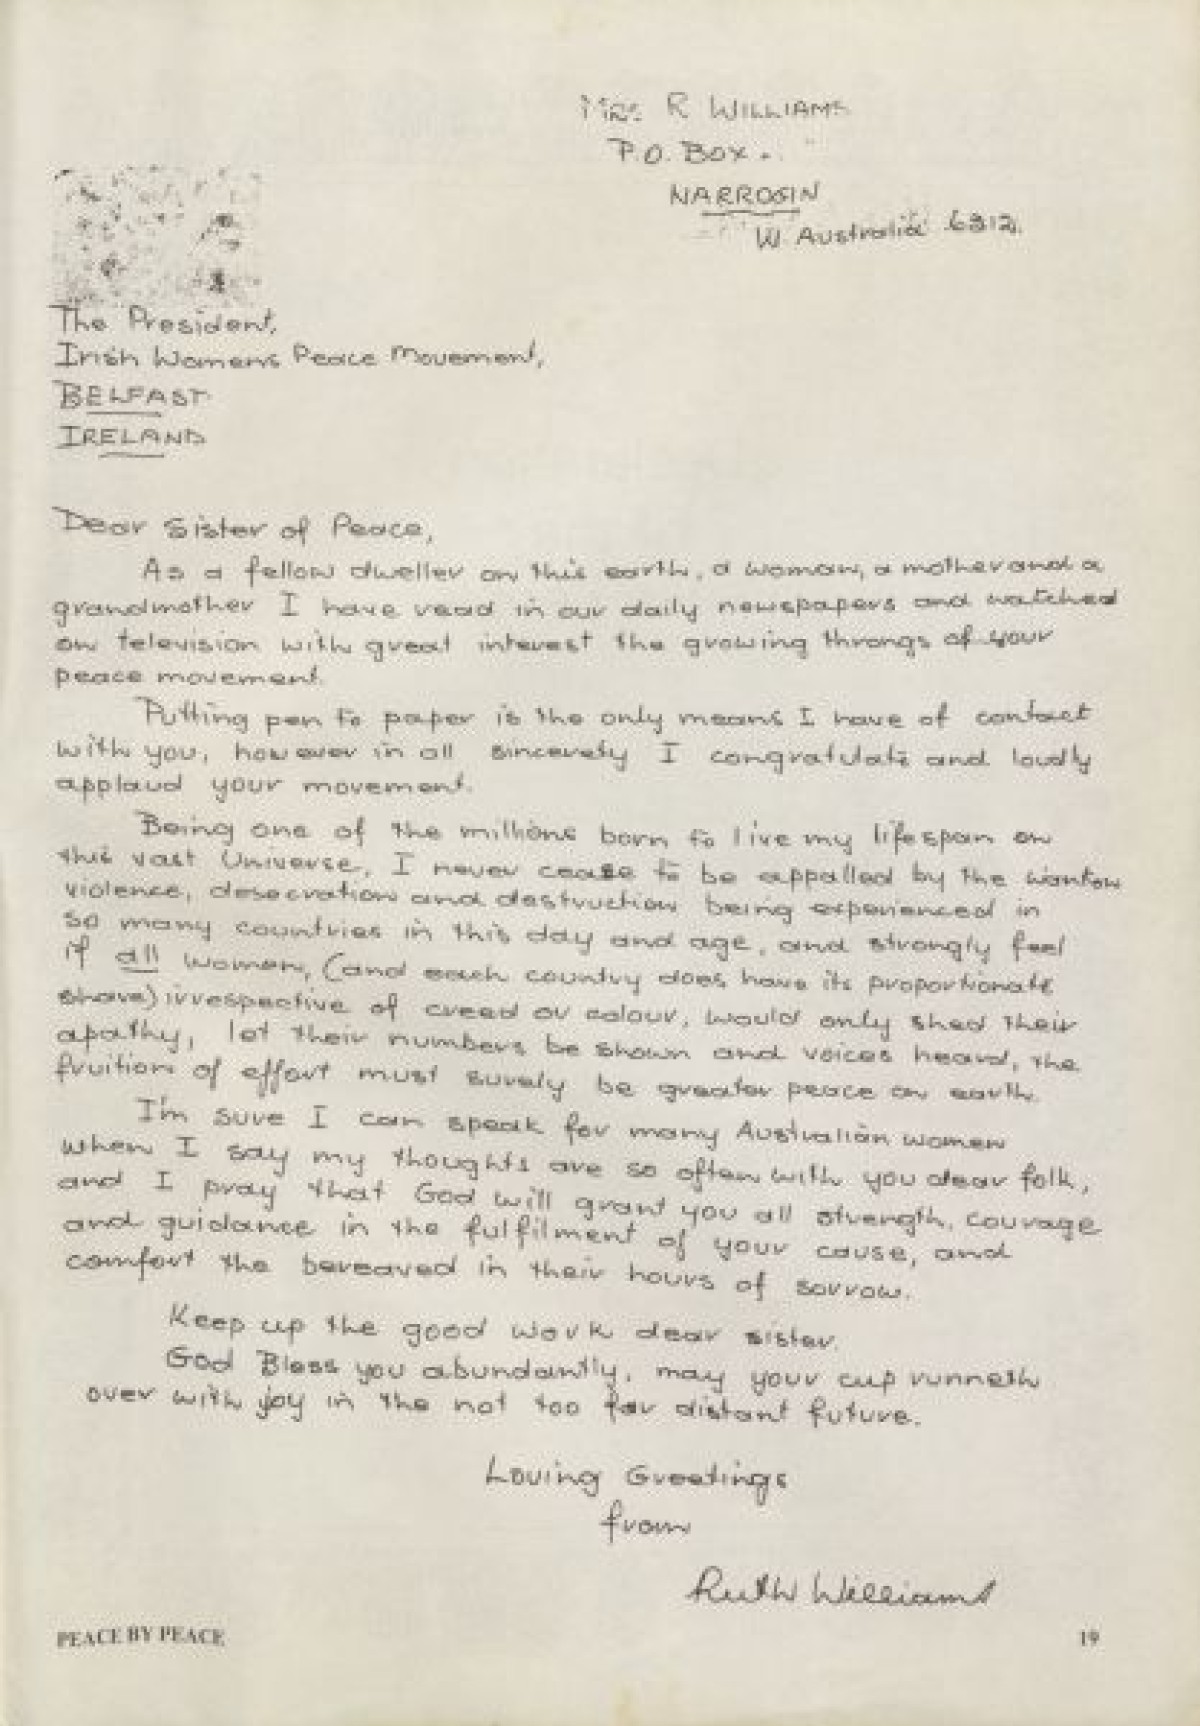 Mrs. R WILLIAMS
P.O. BOX.
NARROGIN
W. Australia 6312.
The President,
Irish Womens Peace Movement,
BELFAST
IRELAND
Dear Sister of Peace,
As a fellow dweller on this earth, a woman, a mother and a
grandmother I have read in our daily newspapers and watched
on television with great interest the growing throngs of your
peace movement.
Putting pen to paper is the only means I have of contact
with you, however in all sincerety I congratulate and loudly
applaud your movement.
Being one of the millions born to live my lifespan on
this vast Universe, I never cease to be appalled by the wanton
violence, desecration and destruction being experienced in
so many countries in this day and age, and strongly feel
if all women, (and each country does have its proportionate
share) irrespective of creed or colour, would only shed their
apathy, let their numbers be shown and voices heard, the
fruition of effort must surely be greater peace on earth.
I'm sure I can speak for many Australian women
when I say my thoughts are so often with you dear folk,
and I pray that God will grant you all strength, courage
and guidance in the fulfilment of your cause, and
comfort the bereaved in their hours of sorrow.
Keep up the good work dear sister.
God Bless you abundantly, may your cup runneth
over with joy in the not too far distant future.
Loving Greetings
from
Ruth Williams
PEACE BY PEACE
19